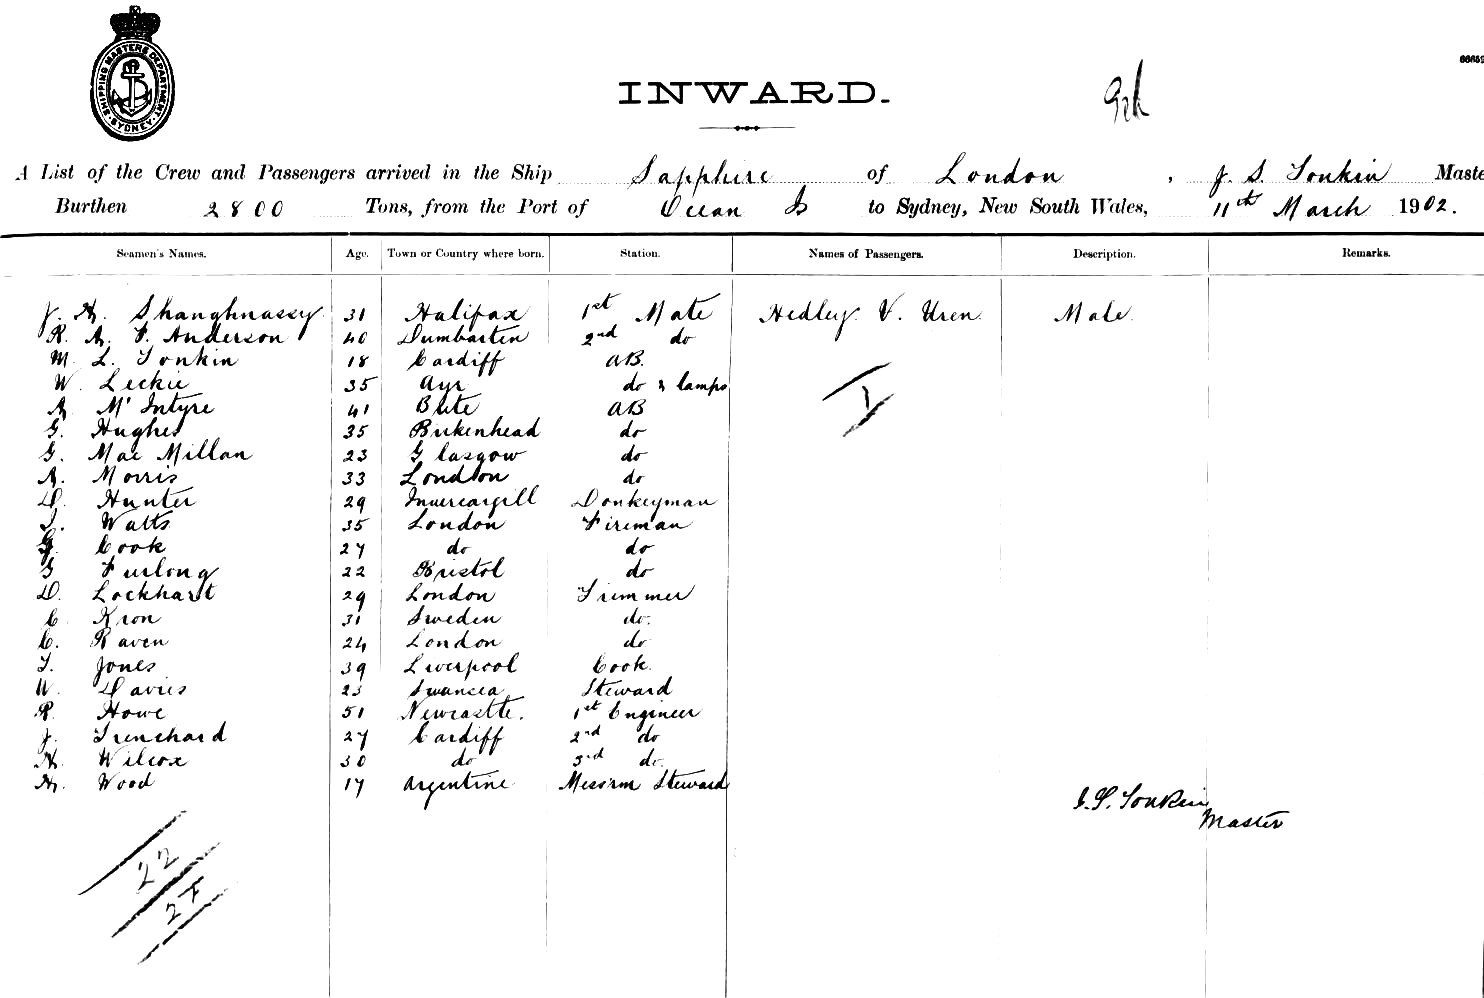 SHIPPING MASTERS DEPARTMENT
SYDNEY
INWARD.
A List of the Crew and Passengers arrived in the Ship Sapphire of London, J. S. Tonkin Maste
Burthen 2800 Tons, from the Port of Ocean Is to Sydney, New South Wales, 11th March 1902.
Seamen's Names. Age. Town or Country where born. Station. Names of Passengers. Description. Remarks.
J. H. Shanghnassy 31 Halifax 1st Mate Hedley V. Uren Male
R. A. F. Anderson 40 Dumbarten 2nd do
M. L. Tonkin 18 Cardiff AB.
W. Leckie 35 Ayr do & lamps
A. McIntyre 41 Bute AB
G. Hughes 35 Birkenhead do
G. Mac Millan 23 Glasgow do
A. Morris 33 London do
D. Hunter 29 Invercargill Donkeyman
T. Watts 35 London Fireman
G. Cook 27 do do
G Furlong 22 Bristol do
D. Lockhart 29 London Trimmer
C. Kron 31 Sweden do.
C. Raven 24 London do
T. Jones 39 Liverpool Cook.
W. Davies 23 Swansea Steward
R. Howe 51 Newcastle. 1st Engineer
J. Trenchard 27 Cardiff 2nd do
H. Wilcox 30 do 3rd do.
H. Wood 17 Argentine Messrm Steward
J. S. Tonkin
Master
22